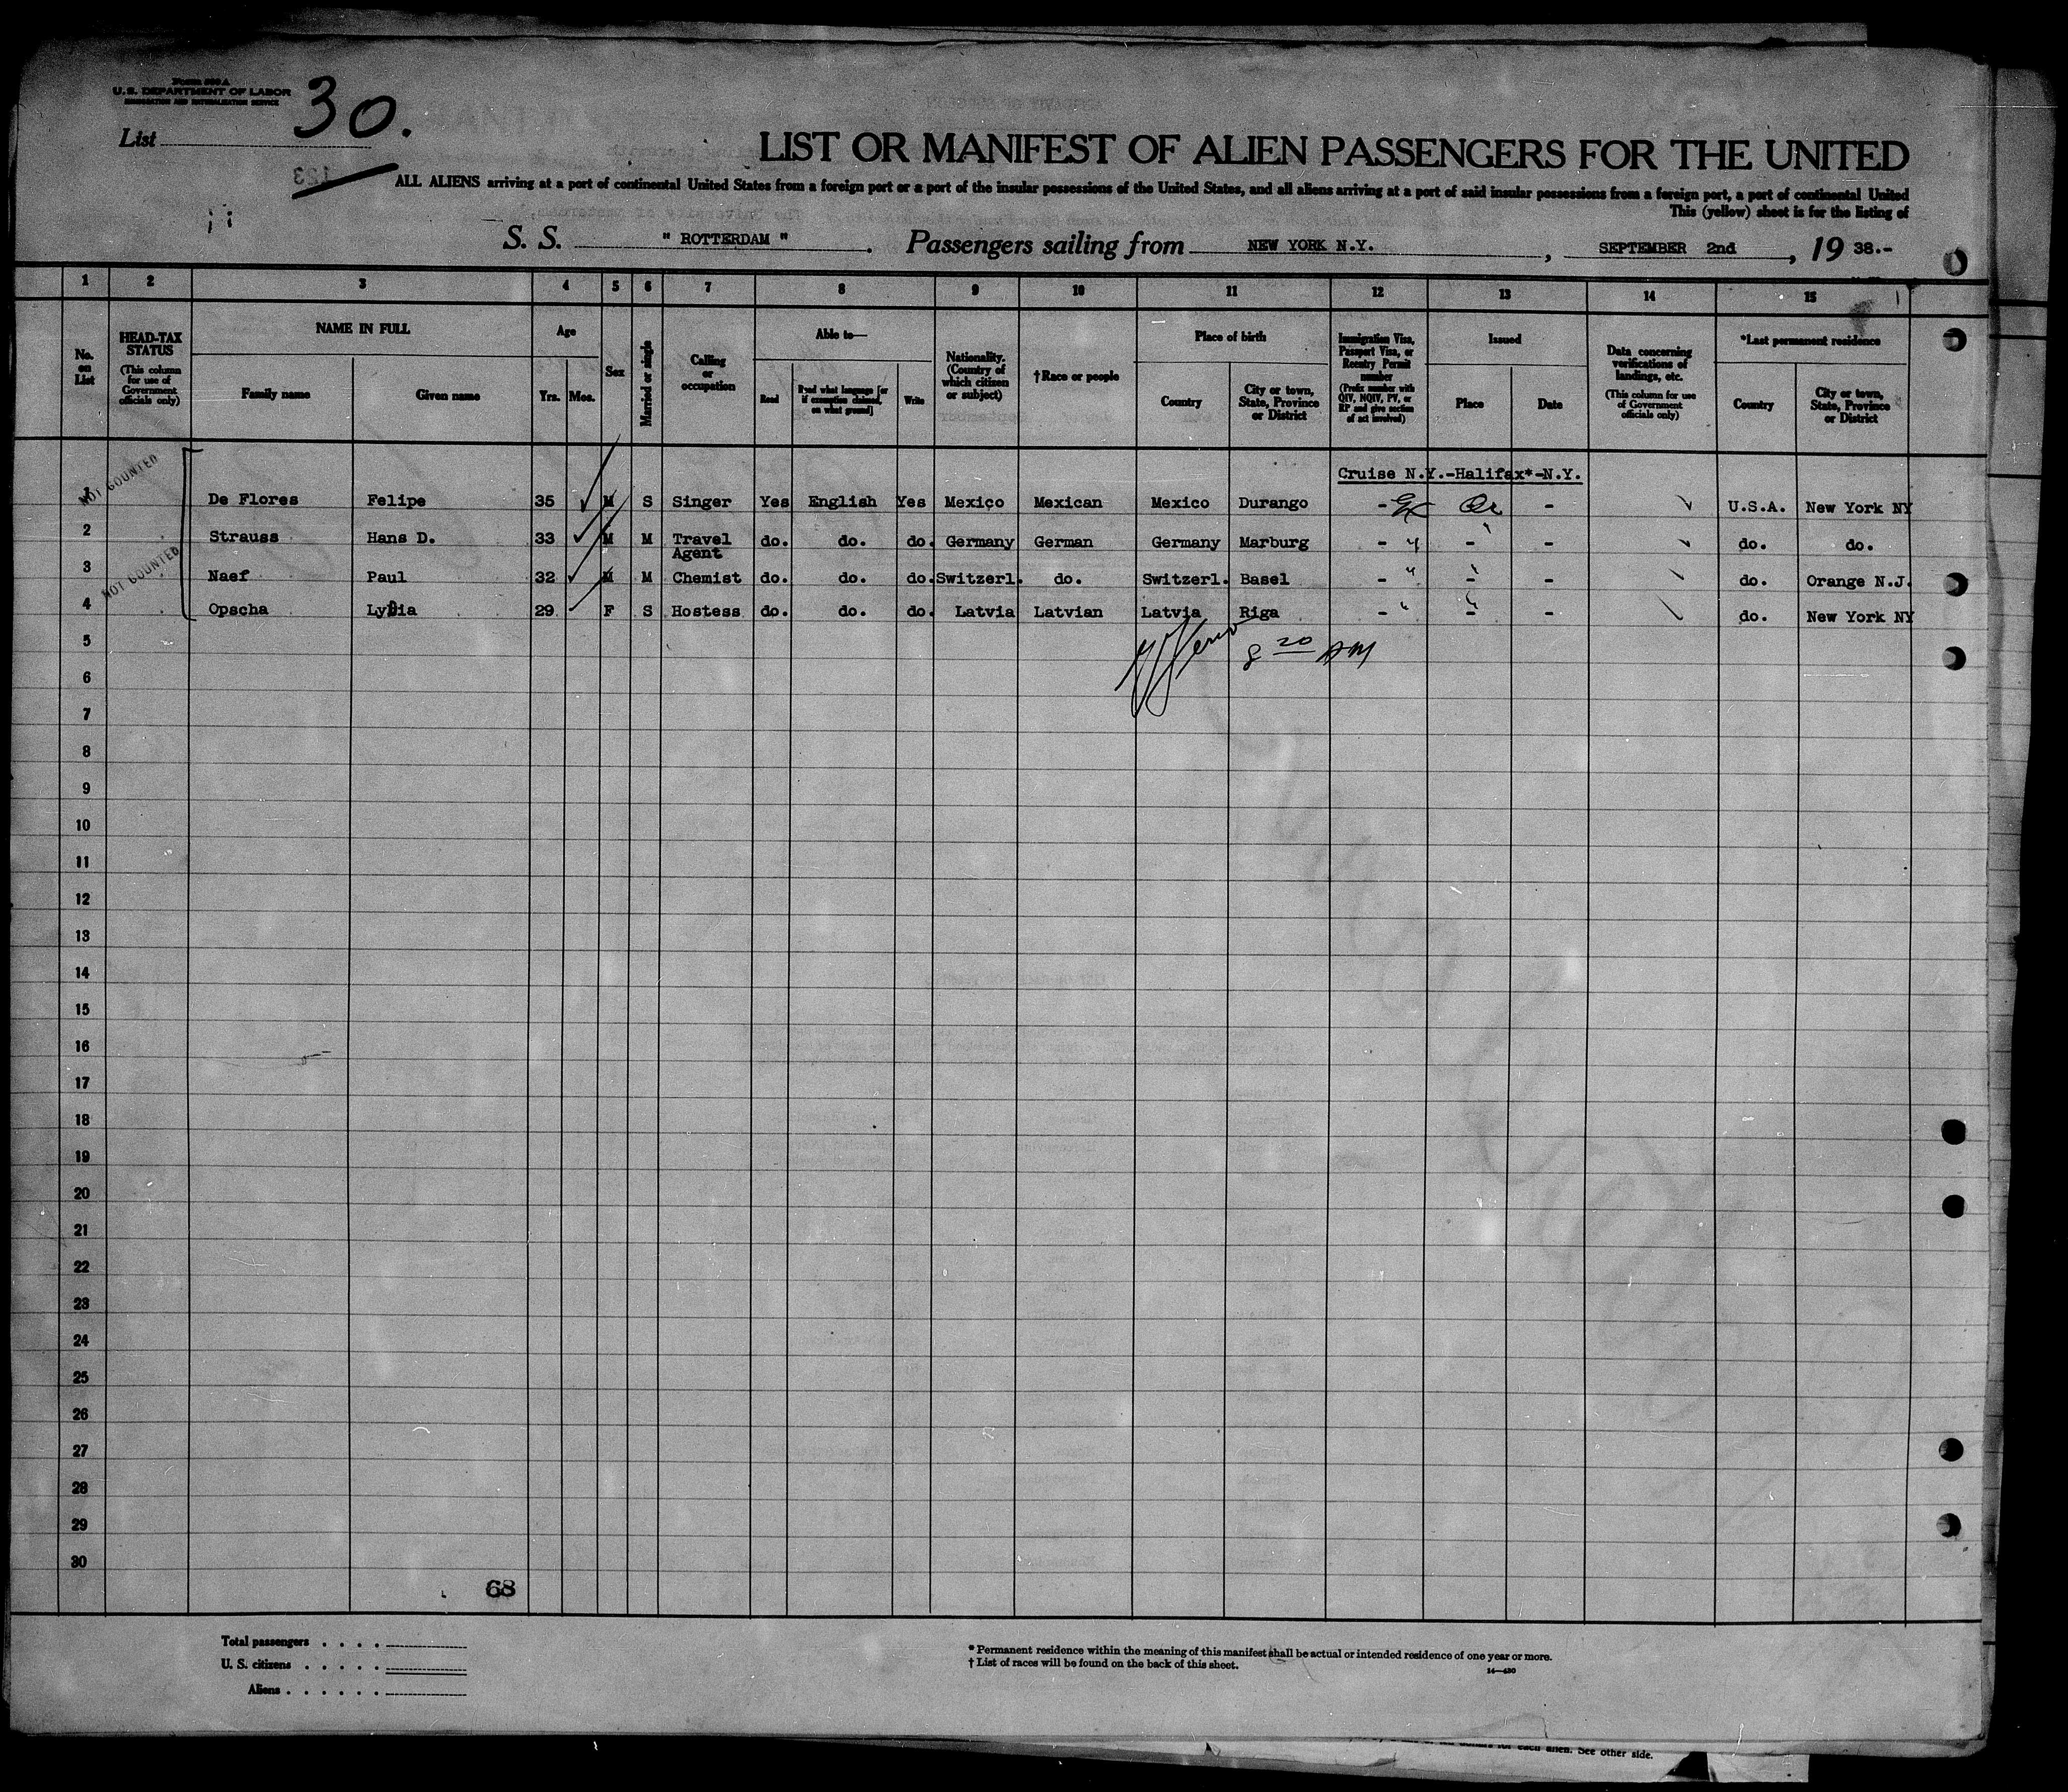 Form 500 A
U.S. DEPARTMENT OF LABOR
IMMIGRATION AND NATURALIZATION SERVICE
List 30.
123
LIST OR MANIFEST OF ALIEN PASSENGERS FOR THE UNITED
ALL ALIENS arriving at a port of continental United States from a foreign port or a port of the insular possessions of the United States, and all aliens arriving at a port of said insular possessions from a foreign port, a port of continental United
This (yellow) sheet is for the listing of
S. S. " ROTTERDAM " . Passengers sailing from NEW YORK N.Y. , SEPTEMBER 2nd , 19 38.-
1 2 3 4 5 6 7 8 9 10 11 12 13 14 15
No. on List
HEAD-TAX STATUS (This column for use of Government officials only)
NAME IN FULL
Family name Given name
Age
Yrs. Mos.
Sex
Married or single
Calling or occupation
Able to—
Read Read what language [or if exemption claimed, on what ground] Write
Nationality. (Country of which citizen or subject)
†Race or people
Place of birth
Country City or town, State, Province or District
Immigration Visa, Passport Visa, or Reentry Permit number (Prefix number with QIV, NQIV, PV, or RP and give section of act involved)
Issued
Place Date
Data concerning verifications of landings, etc. (This column for use of Government officials only)
*Last permanent residence
Country City or town, State, Province or District
Cruise N.Y.-Halifax*-N.Y.
NOT COUNTED
1 De Flores Felipe 35 M S Singer Yes English Yes Mexico Mexican Mexico Durango - - U.S.A. New York NY
2 Strauss Hans D. 33 M M Travel Agent do. do. do. Germany German Germany Marburg - " - - do. do.
NOT COUNTED
3 Naef Paul 32 M M Chemist do. do. do. Switzerl. do. Switzerl. Basel - " - - do. Orange N.J.
4 Opscha Lydia 29 F S Hostess do. do. do. Latvia Latvian Latvia Riga - " - - do. New York NY
5
8 20 AM
6
7
8
9
10
11
12
13
14
15
16
17
18
19
20
21
22
23
24
25
26
27
28
29
30
68
Total passengers . . . .
U. S. citizens . . . . .
Aliens . . . . . .
* Permanent residence within the meaning of this manifest shall be actual or intended residence of one year or more.
† List of races will be found on the back of this sheet.
14—430
for each alien. See other side.